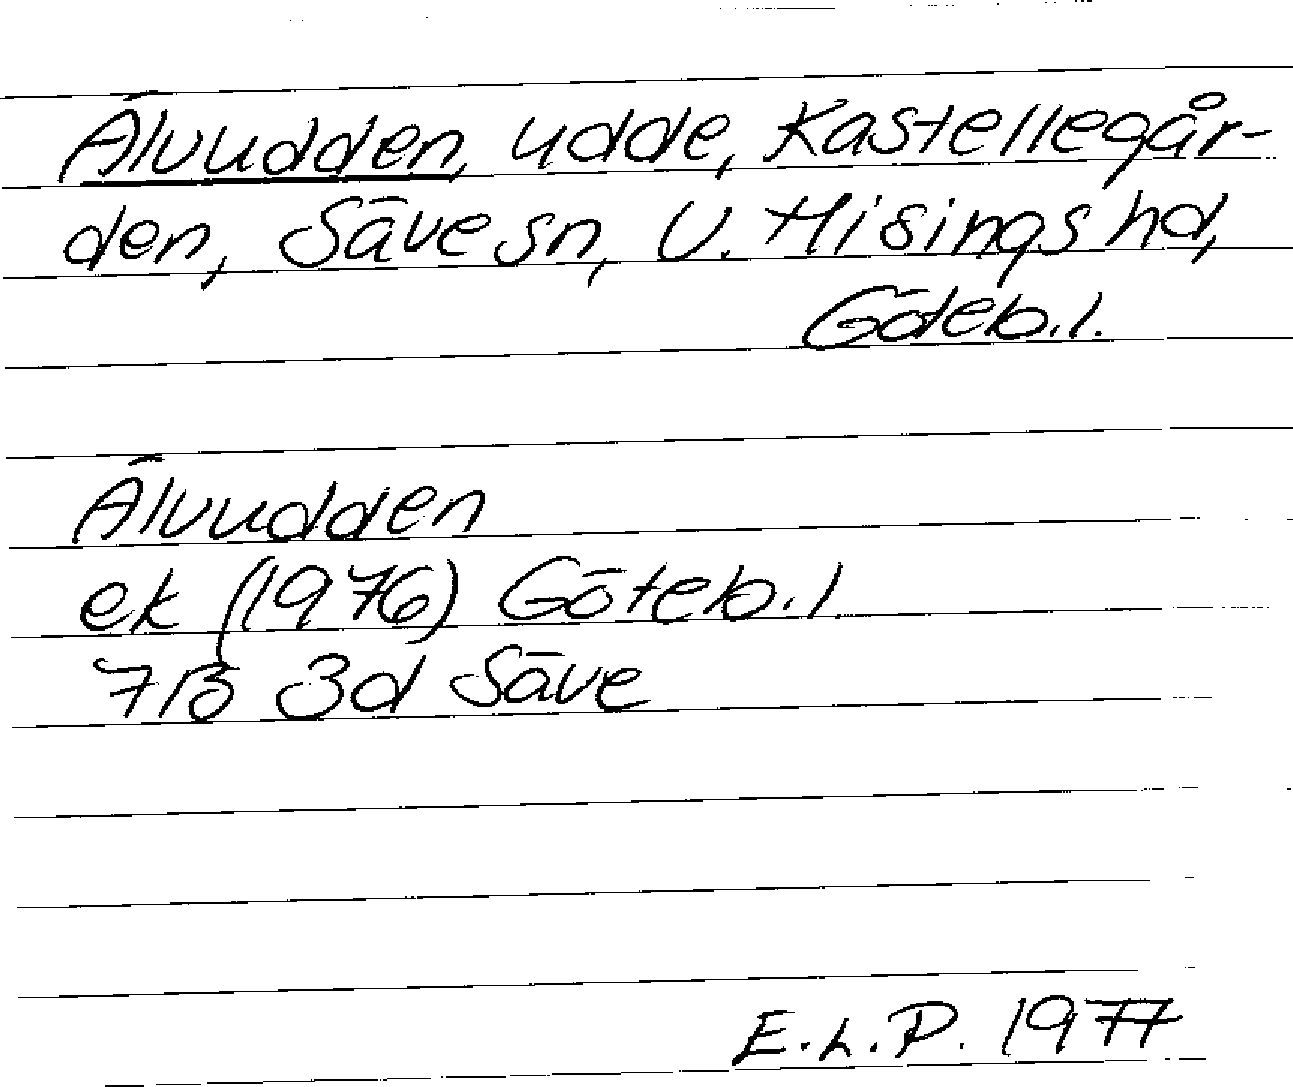 Älvudden, udde, Kastellegår-
den, Säve sn, V. Hisings hd,
Göteb. l.
Älvudden
ek (1976) Göteb. l.
7B 3d Säve
E.L.P. 1977